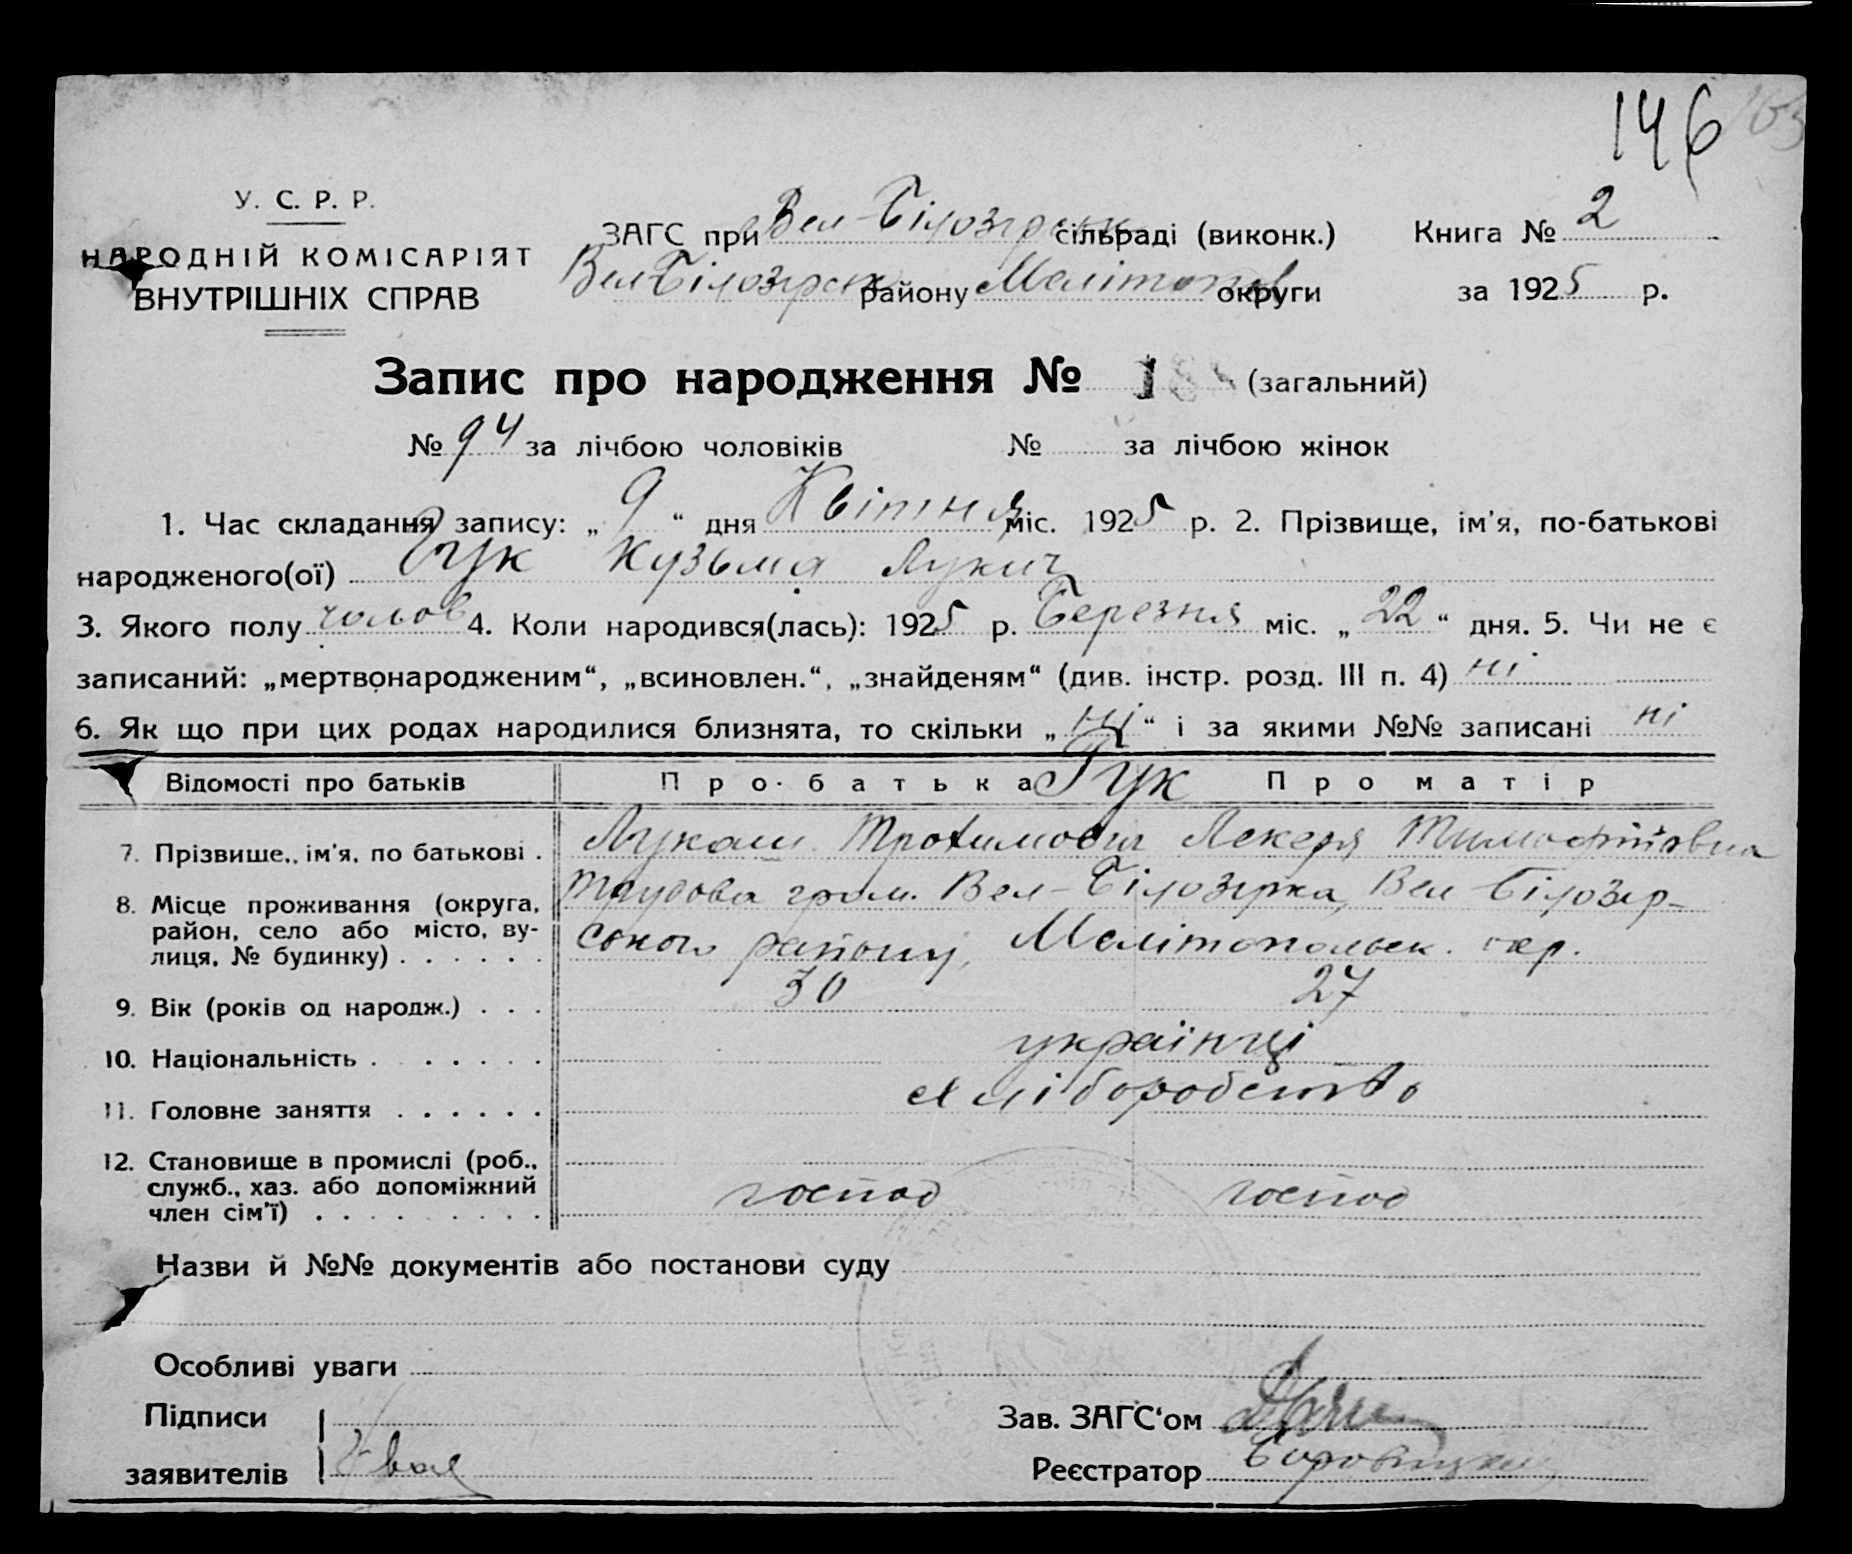 146
У. С. Р. Р.
НАРОДНІЙ КОМІСАРІЯТ
ВНУТРІШНІХ СПРАВ
ЗАГС при Вел-Білозірськ сільраді (виконк.) Книга № 2
Вел Білозірськ району Мелітопол округи за 1925 р.
Запис про народження № (загальний)
№ 94 за лічбою чоловіків № за лічбою жінок
1. Час складання запису: „ 9 “ дня Квітня міс. 1925 р. 2. Прізвище, ім'я, по-батькові
народженого(ої) Гук Кузьма Лукич
3. Якого полу чолов 4. Коли народився(лась): 1925 р. Березня міс. „ 22 “ дня. 5. Чи не є
записаний: „мертвонародженим“, „всиновлен.“, „знайденям“ (див. інстр. розд. III п. 4) ні
6. Як що при цих родах народилися близнята, то скільки „ ні “ і за якими №№ записані ні
Відомості про батьків Про батька Гук Про матір
7. Прізвише., ім'я, по батькові . Лукаш Трохимович Лекеря Тимофіївна
8. Місце проживання (округа, район, село або місто, ву-лиця, № будинку) . . . . . . Трудова гром. Вел-Білозірка, Вел Білозір-
ського району, Мелітопольск. окр.
9. Вік (років од народж.) . . . 30 27
10. Національність . . . . . . . українці
11. Головне заняття . . . . . . хліборобство
12. Становище в промислі (роб.,
служб., хаз. або допоміжний
член сім'ї) . . . . . . . . . господ господ
Назви й №№ документів або постанови суду
Особливі уваги
Підписи Зав. ЗАГС‘ом
заявителів Реєстратор